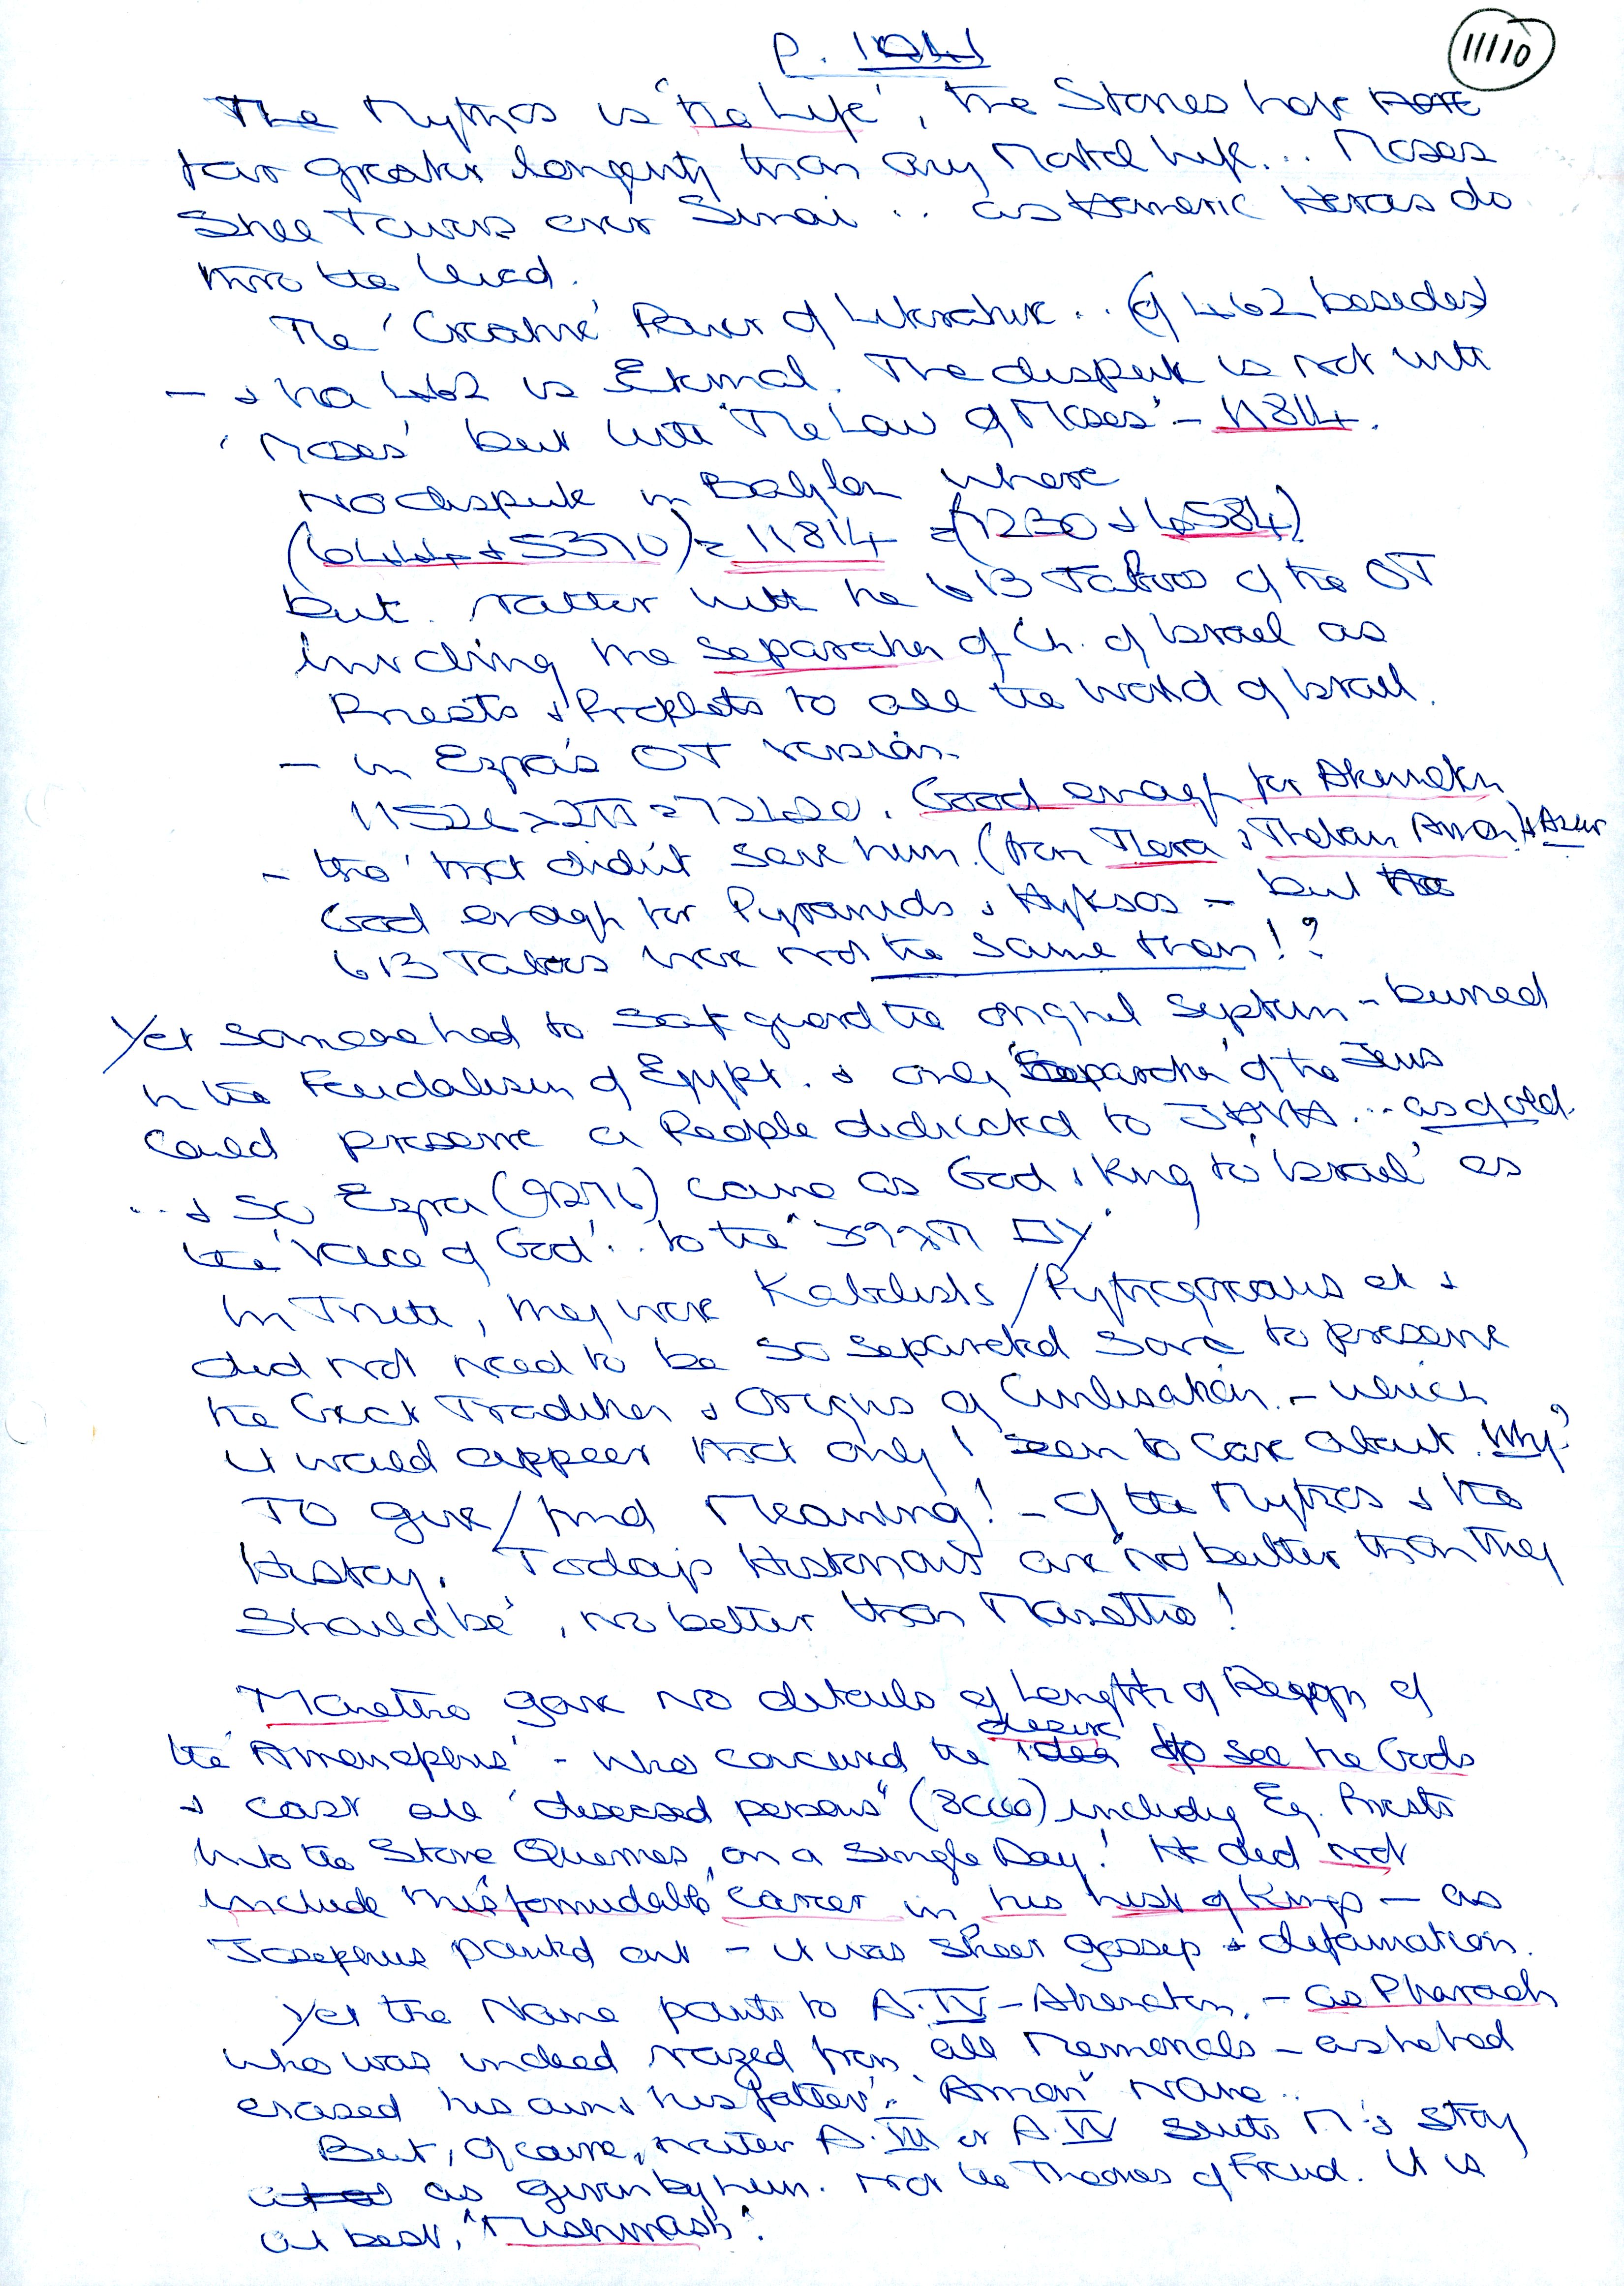 P. 1041
11110
The Mythos is 'the Life', the Stories have
far greater longevity than any Mortal life... Moses
Still Towers over Sinai .. as Homeric Heroes do
thro the Iliad.
The 'Creative' Power of Literature .. (of 462 besides)
— & the 462 is Eternal. The dispute is not with
'Moses' but with 'The Law of Moses' – 11814.
No dispute in Babylon where
(6444 + 5370) = 11814 = (7230 + 4584)
but rather with the 613 Taboos of the OT
involving the separation of Ch. of Israel as
Priests & Prophets to all the world of Israel.
— in Ezra's OT version.
11526 x 2π = 72420. Good enough for Akenaten
– tho' that didn't save him. (from Thera & Theban Amon) & Azur
Good enough for Pyramids & Hyksos – but the
613 Taboos were not the same then!?
Yet someone had to safeguard the original System – buried
in the Feudalism of Egypt. & only 'Separation' of the Jews
could preserve a People dedicated to JAVA ... as of old.
... & so Ezra (9276) came as God & King to 'Israel' as
the 'Voice of God'.. to the
In Truth, they were Kabalists/Pythagoreans et &
did not need to be so separated save to preserve
the Great Tradition & Origins of Civilisation. – which
it would appear that only I seem to care about. Why?
To give/find Meaning! – of the Mythos & the
History. Today's Historians are 'no better than they
should be', no better than Manetho!
Manetho gave no details of Length of Reign of
the 'Amenophis' – who conceived the desire to see the Gods
& cast all "diseased persons" (8000) including Eg. Priests
into the Stone Quarries, on a Single Day! He did not
include this "formidable" career in his list of Kings – as
Josephus pointed out – it was sheer gossip & defamation.
Yet the Name points to A.IV – Akenaten, – as Pharaoh
who was indeed razed from all Memorials – as he had
erased his own & his father's 'Amon' name ..
But, of course, neither A.III or A.IV suits M's story
as given by him. Nor the Theories of Freud. It is
at best, "Mishmash".